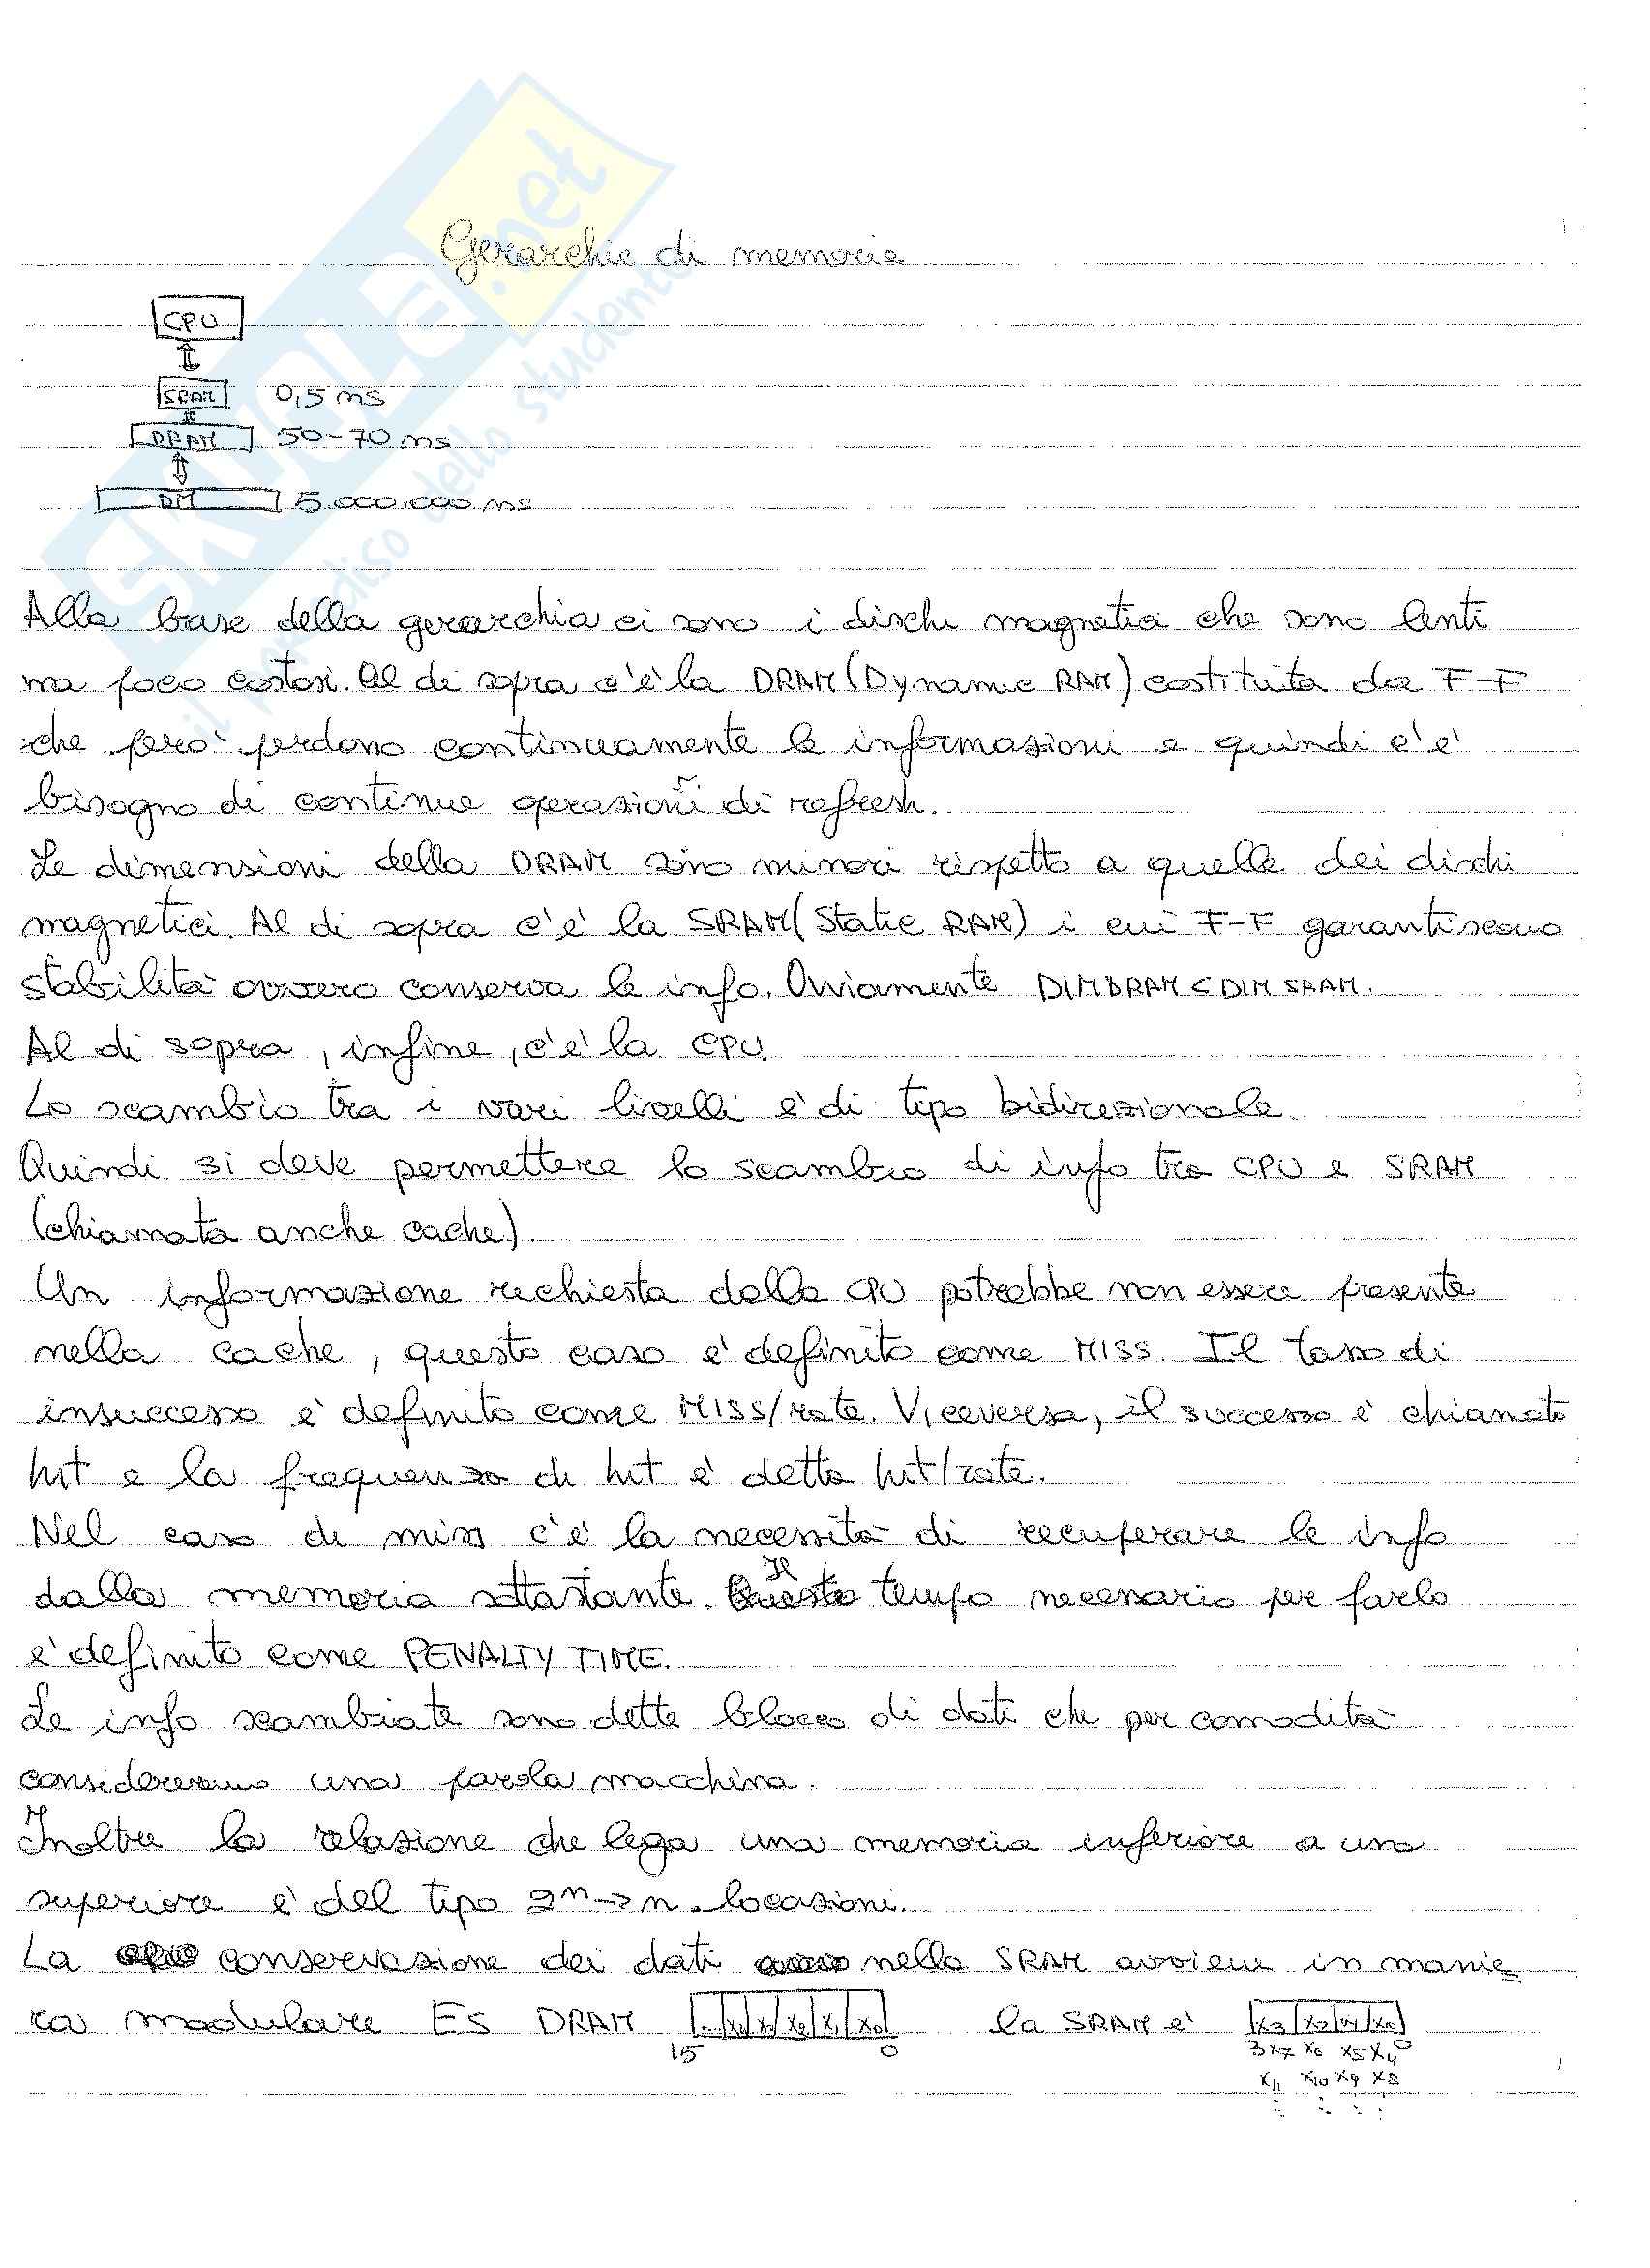 SKUOLA.net
il paradiso dello studente
Gerarchie di memorie
CPU
SRAM 0,5 ns
DRAM 50-70 ns
DM 5.000.000 ns
Alla base della gerarchia ci sono i dischi magnetici che sono lenti
ma poco costosi. Al di sopra c'è la DRAM (Dynamic RAM) costituita da F-F
che però perdono continuamente le informazioni e quindi c'è
bisogno di continue operazioni di refresh.
Le dimensioni della DRAM sono minori rispetto a quelle dei dischi
magnetici. Al di sopra c'è la SRAM (Static RAM) i cui F-F garantiscono
stabilità ovvero conserva le info. Ovviamente DIMDRAM < DIM SRAM.
Al di sopra, infine, c'è la CPU.
Lo scambio tra i vari livelli è di tipo bidirezionale.
Quindi si deve permettere lo scambio di info tra CPU e SRAM
(chiamata anche cache).
Un informazione richiesta dalla CPU potrebbe non essere presente
nella cache, questo caso è definito come MISS. Il tasso di
insuccesso è definito come MISS/rate. Viceversa, il successo è chiamato
hit e la frequenza di hit è detta hit/rate.
Nel caso di miss c'è la necessità di recuperare le info
dalla memoria sottostante. Il tempo necessario per farlo
è definito come PENALTY TIME.
Le info scambiate sono dette blocco di dati che per comodità
considereremo una parola macchina.
Inoltre la relazione che lega una memoria inferiore a una
superiore è del tipo 2^n -> n locazioni.
La conservazione dei dati nella SRAM avviene in manie
ra modulare ES DRAM x2 x1 x0 la SRAM è x3 x2 x1 x0
15 0 3 x7 x6 x5 x4 0
x11 x10 x9 x8